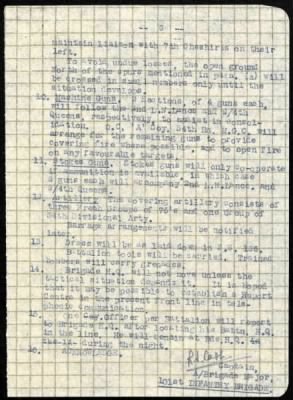 -- 3 --
maintain liaison with 7th Cheshires on their
left.
To avoid undue losses, the open ground
North of the spurs mentioned in para. (a) will
be crossed in small numbers only until the
situation develops.
10. Machine Guns. 2 Sections, of 4 guns each,
will follow the 2nd L.N.Lancs and 2/4th
Queens, respectively, to assist in consol-
idation. O.C. 'A' Coy. 34th Bn. M.G.C. will
arrange for the remaining guns to provide
covering fire where possible and to open fire
on any favourable targets.
11. Stokes Guns. Stokes guns will only co-operate
if ammunition is available, in which case
2 guns each will accompany 2nd L.N.Lancs. and
2/4th Queens.
12. Artillery. The covering artillery consists of
three French Groups of 75's and one Group of
34th Divisional Arty.
Barrage arrangements will be notified
later.
13. Dress will be as laid down in
Battalion tools will be carried. Trained
bombers will carry grenades.
14. Brigade H.Q. will not move unless the
tactical situation demands it. It is hoped
that it may be possible to establish a Report
Centre in the present front line in tele-
phonic communication.
15. One Officer per Battalion will report
to Brigade H.Q. after locating his Battn. H.Q.
in the line. He will remain at Bde. H.Q.
during the night.
16. ACKNOWLEDGE.
Captain,
A/Brigade Major,
101st INFANTRY BRIGADE.